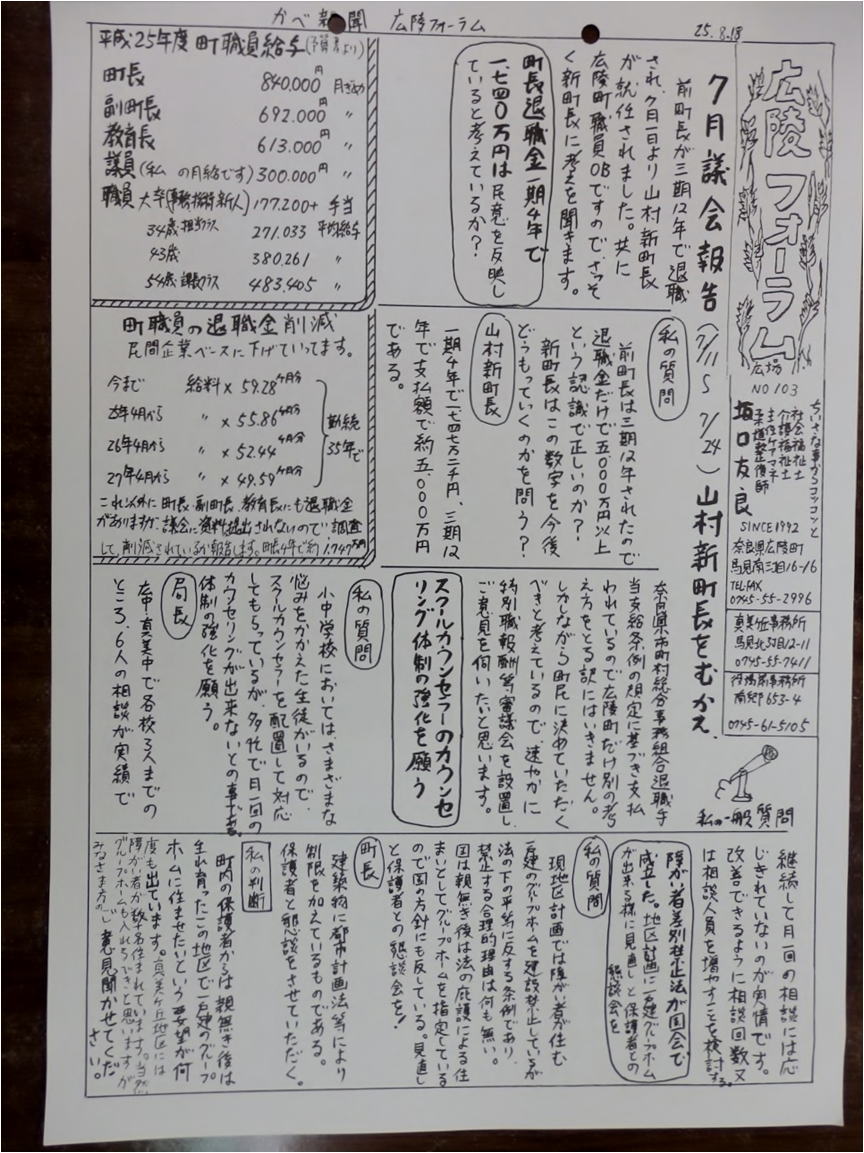 かべ新聞 広陵フォーラム
25.8.18
広陵フォーラム
広場
NO 103
ちいさな事からコツコツと
社会福祉士
介護福祉士
主任ケアマネ
柔道整復師
坂口友良
SINCE 1992
奈良県広陵町
馬見南三丁目16-16
TEL・FAX
0745-55-2996
真美ヶ丘事務所
馬見北3丁目12-11
0745-55-7411
役場前事務所
南郷653-4
0745-61-5105
7月議会報告(7/11〜7/24)山村新町長をむかえ、
前町長が三期12年で退職
され、7月一日より山村新町長
が就任されました。共に
広陵町職員OBですので、さっそ
く新町長に考えを聞きます。
町長退職金一期4年で
一、七四〇万円は民意を反映し
ていると考えているか?
平成25年度 町職員給与(予算書より)
町長 840.000円 月ぎめ
副町長 692.000円 〃
教育長 613.000円 〃
議員(私の月給です) 300.000円 〃
職員 大卒(事務技術新人) 177.200+ 手当
34歳 担当クラス 271.033 平均給与
43歳 380.261 〃
54歳・課長クラス 483.405 〃
町職員の退職金削減
民間企業ベースに下げていってます。
今まで 給料×59.28ヶ月分
25年4月から 〃 ×55.86ヶ月分
26年4月から 〃 ×52.44ヶ月分
27年4月から 〃 ×49.59ヶ月分
勤続
35年で
これ以外に町長、副町長、教育長にも退職金
がありますが、議会に資料提出されないので調査
して、削減されているか報告します。町長4年で約1,747万円
私の質問
前町長は三期12年されたので
退職金だけで五、〇〇〇万円以上
という認識で正しいのか?
新町長はこの数字を今後
どうもっていくのかを問う?
山村新町長
一期4年で一七四七万二千円、三期12
年で支払額で約五、〇〇〇万円
である。
奈良県市町村総合事務組合退職手
当支給条例の規定に基づき支払
われているので広陵町だけ別の考
え方をとる訳にはいきません。
しかしながら町民に決めていただく
べきと考えているので、速やかに
特別職報酬等審議会を設置し、
ご意見を伺いたいと思います。
スクールカウンセラーのカウンセ
リング体制の強化を願う
私の質問
小中学校においては、さまざまな
悩みをかかえた生徒がいるので、
スクールカウンセラーを配置して対応
してもらっているが、多忙で月一回の
カウンセリングが出来ないとの事である。
体制の強化を願う。
局長
広中・真美中で各校3人までの
ところ、6人の相談が実績で
私の一般質問
継続して月一回の相談には応
じきれていないのが実情です。
改善できるように相談回数又
は相談人員を増やすことを検討する。
障がい者差別禁止法が国会で
成立した。地区計画に一戸建グループホーム
が出来る様に見直しと保護者との
懇談会を
私の質問
現地区計画では障がい者が住む
一戸建のグループホームを建設禁止しているが
法の下の平等に反する条例であり、
禁止する合理的理由は何も無い。
国は親無き後は法の庇護による住
まいとしてグループホームを指定している
ので国の方針にも反している。見直し
と保護者との懇談会を!
町長
建築物に都市計画法等により
制限を加えているものである。
保護者と懇談をさせていただく。
私の判断
町内の保護者からは親無き後は
生れ育ったこの地区で一戸建のグループ
ホームに住ませたいという要望が何
度も出ています。真美ヶ丘地区には
障がい者が数十名住まれています。当然
グループホームも入れるべきと思いますが
みなさま方のご意見聞かせてくだ
さい。